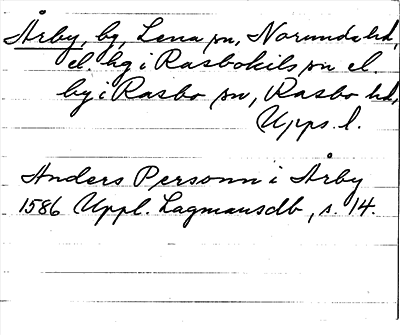 Årby, by, Lena sn, Norunda hd,
el. by i Rasbokils sn el.
by i Rasbo sn, Rasbo hd,
Upps. l.
Anders Personn i Årby
1586 Uppl. Lagmansdb, s. 14.